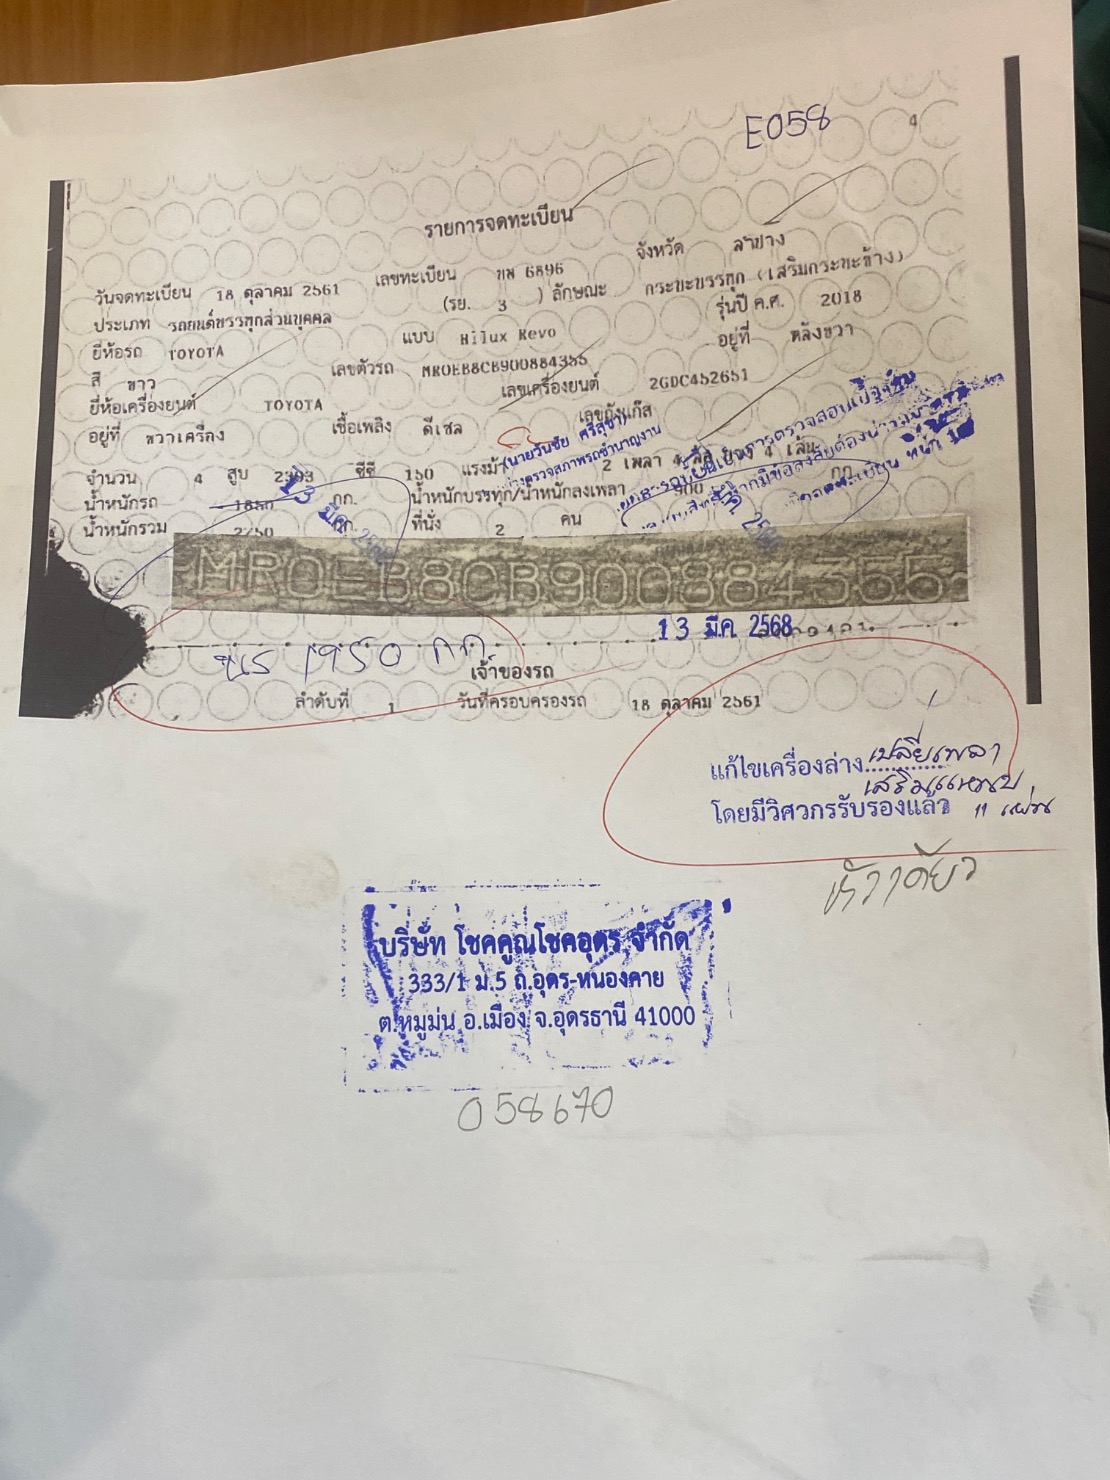 E058
4
รายการจดทะเบียน
วันจดทะเบียน 18 ตุลาคม 2561 เลขทะเบียน 6896 จังหวัด ลำปาง
ประเภท รถยนต์บรรทุกส่วนบุคคล (รย. 3 ) ลักษณะ กระบะบรรทุก (เสริมกระบะข้าง)
ยี่ห้อรถ TOYOTA แบบ Hilux Revo รุ่นปี ค.ศ. 2018
สี ขาว เลขตัวรถ MR0EB8CB900884355 อยู่ที่ คลังขวา
ยี่ห้อเครื่องยนต์ TOYOTA เลขเครื่องยนต์ 2GDC452651
อยู่ที่ ขวาเครื่อง เชื้อเพลิง ดีเซล เลขถังแก๊ส
(นายวันชัย ศรีสุขา)
ช่างตรวจสภาพรถชำนาญงาน
จำนวน 4 สูบ 2393 ซีซี 150 แรงม้า 2 เพลา 4 ล้อ ยาง 4 เส้น
น้ำหนักรถ 1850 กก. น้ำหนักบรรทุก/น้ำหนักลงเพลา 900 กก.
น้ำหนักรวม 2750 กก. ที่นั่ง 2 คน
13 มี.ค.
MR0EB8CB900884355
13 มี.ค. 2568
1950 กก.
เจ้าของรถ
ลำดับที่ 1 วันที่ครอบครองรถ 18 ตุลาคม 2561
แก้ไขเครื่องล่าง เปลี่ยนเพลา
เสริมแหนบ
โดยมีวิศวกรรับรองแล้ว 11 แผ่น
หัวเดียว
บริษัท โชคคูณโชคอุดร จำกัด
333/1 ม.5 ถ.อุดร-หนองคาย
ต.หมูม่น อ.เมือง จ.อุดรธานี 41000
058670